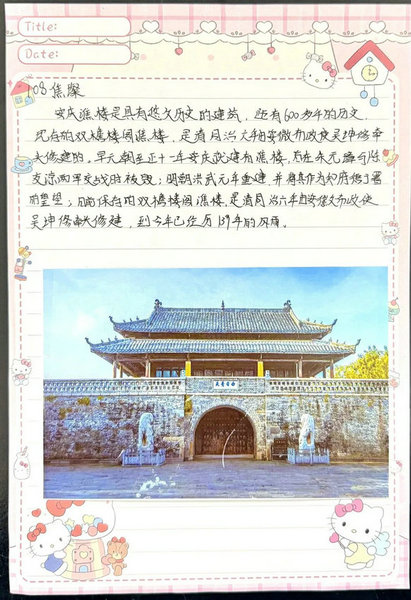 Title:
Date:
08 谯楼
安庆谯楼是具有悠久历史的建筑，距有600多年的历史，
现存的双檐楼阁谯楼，是清同治六年由安徽布政使吴坤修奉
修建的，早元朝至正十一年安庆建有谯楼，后在余元
友谅两军交战时被毁；明朝洪武元年重建，并将其作为府署
的；目前保存的双檐楼阁谯楼，是清同治六年由安徽布政使
吴坤修修建，到今年已经历139年的风雨。